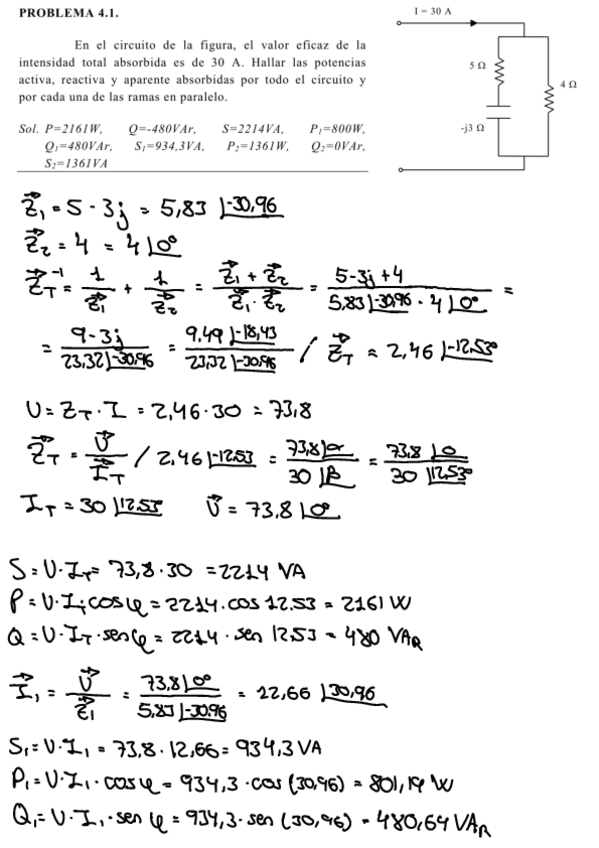 PROBLEMA 4.1.
I = 30 A
En el circuito de la figura, el valor eficaz de la
intensidad total absorbida es de 30 A. Hallar las potencias
activa, reactiva y aparente absorbidas por todo el circuito y
por cada una de las ramas en paralelo.
5 Ω
4 Ω
-j3 Ω
Sol. P=2161W, Q=-480VAr, S=2214VA, P₁=800W,
Q₁=480VAr, S₁=934,3VA, P₂=1361W, Q₂=0VAr,
S₂=1361VA
Z⃗₁ = 5 - 3j = 5,83 |-30,96
Z⃗₂ = 4 = 4 |0°
Z⃗_T⁻¹ = 1/Z⃗₁ + 1/Z⃗₂ = (Z⃗₁ + Z⃗₂)/(Z⃗₁ · Z⃗₂) = (5-3j+4)/(5,83 |-30,96 · 4 |0°) =
= (9-3j)/(23,32 |-30,96) = (9.49 |-18,43)/(23,32 |-30.96) / Z⃗_T = 2,46 |-12.53°
U = Z_T · I = 2,46 · 30 = 73,8
Z⃗_T = U⃗/I⃗_T / 2,46 |-12.53 = (73,8 |α)/(30 |β) = (73,8 |0)/(30 |12.53°)
I_T = 30 |12.53° U⃗ = 73,8 |0°
S = U·I_T = 73,8 · 30 = 2214 VA
P = U·I_T cos φ = 2214 · cos 12.53 = 2161 W
Q = U·I_T · sen φ = 2214 · sen 12.53 = 480 VAR
I⃗₁ = U⃗/Z⃗₁ = (73,8 |0°)/(5,83 |-30.96) = 12,66 |30,96
S₁ = U·I₁ = 73,8 · 12,66 = 934,3 VA
P₁ = U·I₁ · cos φ = 934,3 · cos (30,96) = 801,19 W
Q₁ = U·I₁ · sen φ = 934,3 · sen (30,96) = 480,64 VAR